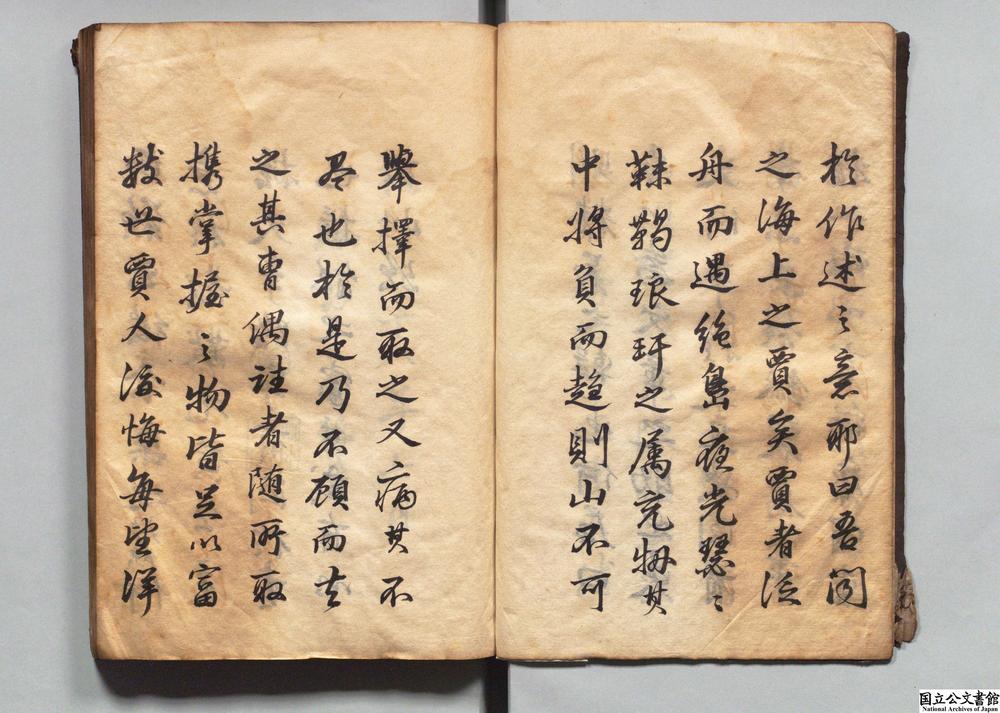 於作述之意耶曰吾聞
之海上之賈矣賈者泛
舟而遇絶島夜光瑟々
靺鞨琅玕之属充牣其
中將負而趍則山不可
擧擇而取之又病其不
尽也於是乃不顧而去
之其曹偶註者随所取
携掌握之物皆足以富
数世賈人後悔毎望洋
国立公文書館
National Archives of Japan